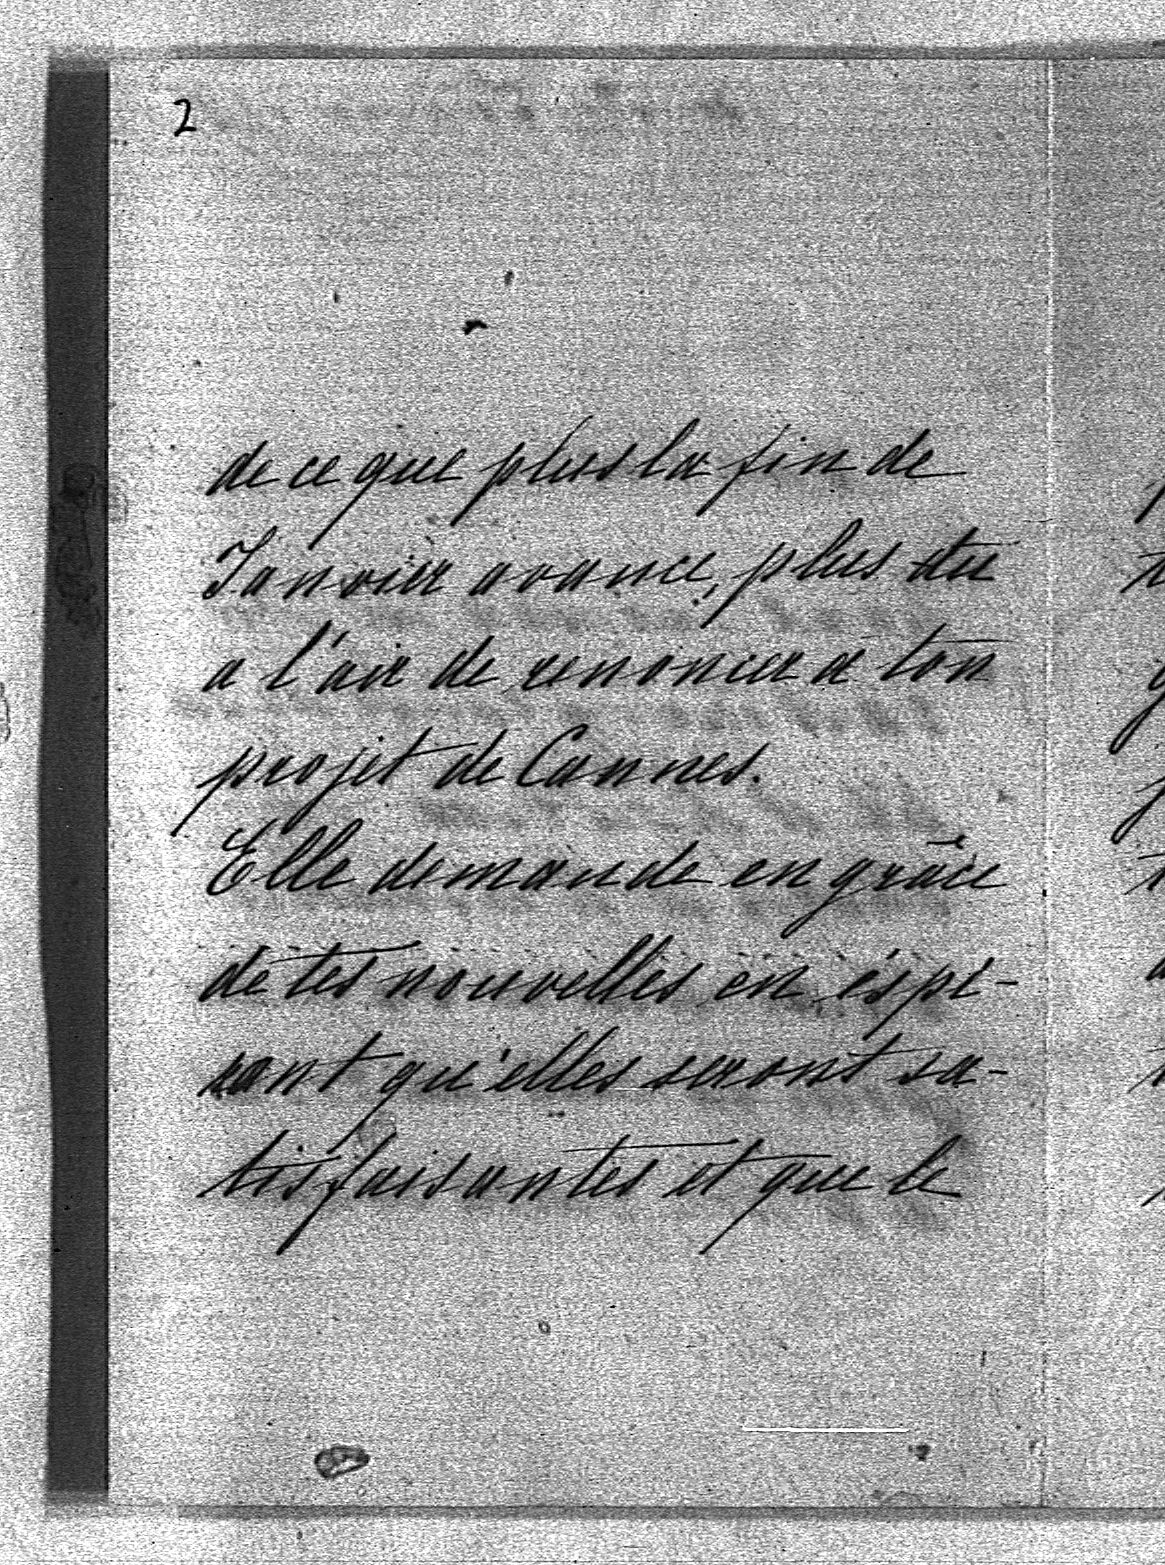 2
de ce que plus la fin de
Janvier avance, plus tu
a l'air de renoncer à ton
projet de Cannes.
Elle demande en grâce
de tes nouvelles en espé-
rant qu'elles seront sa-
tisfaisantes et que le